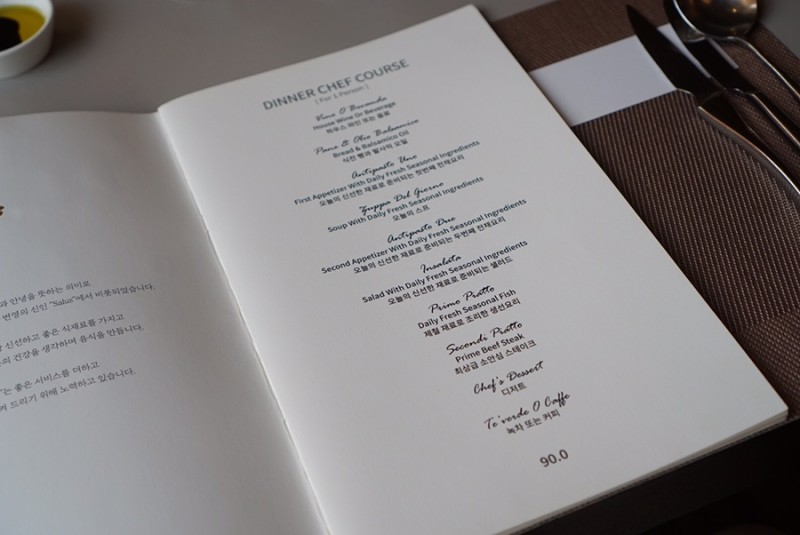 과 안녕을 뜻하는 의미로
번영의 신인 "Salus"에서 비롯되었습니다.
신선하고 좋은 식재료를 가지고
의 건강을 생각하며 음식을 만듭니다.
는 좋은 서비스를 더하고
드리기 위해 노력하고 있습니다.
DINNER CHEF COURSE
( For 1 Person )
Vino O Bevanda
House Wine Or Beverage
하우스 와인 또는 음료
Pane & Olio Balsamico
Bread & Balsamico Oil
식전 빵과 발사믹 오일
Antipasto Uno
First Appetizer With Daily Fresh Seasonal Ingredients
오늘의 신선한 재료로 준비되는 첫번째 전채요리
Zuppa Del Giorno
Soup With Daily Fresh Seasonal Ingredients
오늘의 스프
Antipasto Due
Second Appetizer With Daily Fresh Seasonal Ingredients
오늘의 신선한 재료로 준비되는 두번째 전채요리
Insalata
Salad With Daily Fresh Seasonal Ingredients
오늘의 신선한 재료로 준비되는 샐러드
Primo Piatto
Daily Fresh Seasonal Fish
제철 재료로 조리한 생선요리
Secondi Piatto
Prime Beef Steak
최상급 소안심 스테이크
Chef's Dessert
디저트
Te'verde O Caffe
녹차 또는 커피
90.0